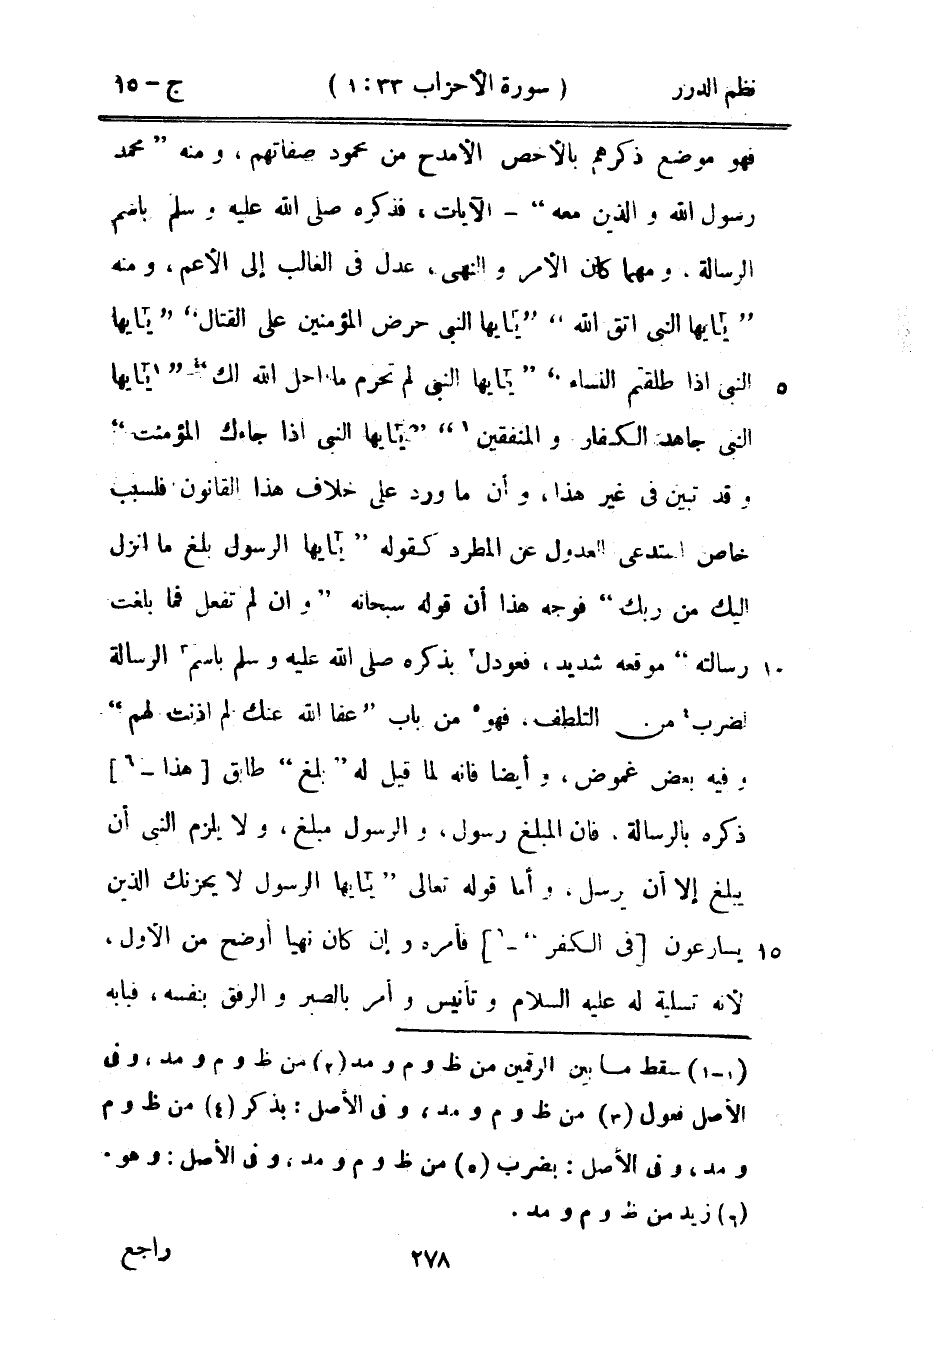 نظم الدرر ( سورة الأحزاب ٣٣ : ١ ) ج - ١٥
فهو موضع ذكرهم بالأخص الأمدح من محمود صفاتهم ، و منه ” محمد
رسول الله و الذين معه “ - الآيات ، فذكره صلى الله عليه و سلم باسم
الرسالة . و مهما كان الأمر و النهى ، عدل فى الغالب إلى الأعم ، و منه
” يٰۤايها النبى اتق الله “ ” يٰۤايها النبى حرض المؤمنين على القتال “ ” يٰۤايها
النبى اذا طلقتم النساء “ ” يٰۤايها النبى لم تحرم ما احل الله لك “ ” ١يٰۤايها ٥
النبى جاهد الكفار و المنفقين ١ “ ” يٰۤايها النبى اذا جاءك المؤمنت “
و قد تبين فى غير هذا ، و أن ما ورد على خلاف هذا القانون فلسبب
خاص استدعى العدول عن المطرد كقوله ” يٰۤايها الرسول بلغ ما انزل
اليك من ربك “ فوجه هذا أن قوله سبحانه ” و ان لم تفعل فما بلغت
رسالته “ موقعه شديد ، فعودل٢ بذكره صلى الله عليه و سلم باسم٣ الرسالة ١٠
لضرب٤ من التلطف ، فهو٥ من باب ” عفا الله عنك لم اذنت لهم “
و فيه بعض غموض ، و أيضا فانه لما قيل له ” بلغ “ طابق [ هذا - ٦ ]
ذكره بالرسالة . فان المبلغ رسول ، و الرسول مبلغ ، و لا يلزم النبى أن
يبلغ إلا أن يرسل . و أما قوله تعالى ” يٰۤايها الرسول لا يحزنك الذين
يسارعون [ فى الكفر “ - ٦ ] فأمره و إن كان نهيا أوضح من الأول ، ١٥
لأنه تسلية له عليه السلام و تأنيس و أمر بالصبر و الرفق بنفسه ، فبابه
(١-١) سقط ما بين الرقمين من ظ و م و مد (٢) من ظ و م و مد ، و فى
الأصل فعول (٣) من ظ و م و مد ، و فى الأصل : بذكر (٤) من ظ و م
و مد ، و فى الأصل : بضرب (٥) من ظ و م و مد ، و فى الأصل : و هو .
(٦) زيد من ظ و م و مد .
٢٧٨ راجع